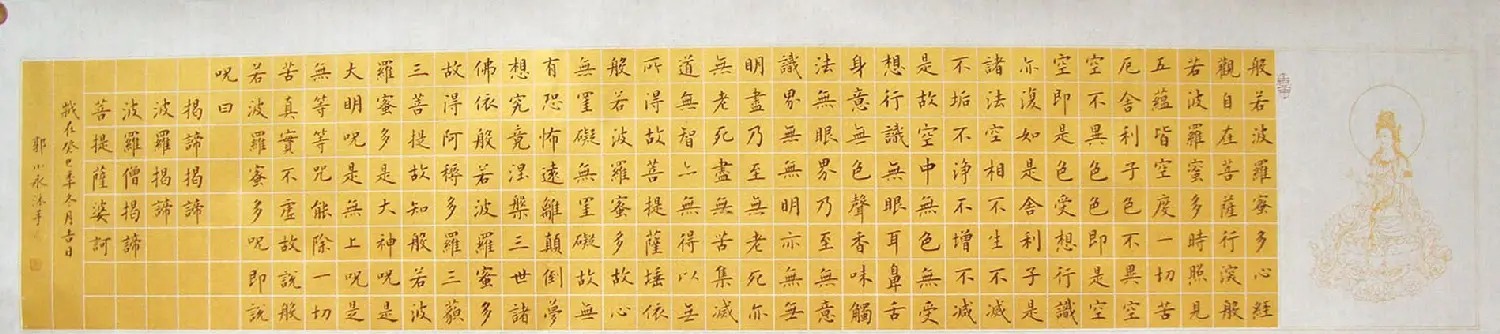 般若波羅蜜多心經
觀自在菩薩行深般
若波羅蜜多時照見
五蘊皆空度一切苦
厄舍利子色不異空
空不異色色即是空
空即是色受想行識
亦復如是舍利子是
諸法空相不生不滅
不垢不淨不增不減
是故空中無色無受
想行識無眼耳鼻舌
身意無色聲香味觸
法無眼界乃至無意
識界無無明亦無無
明盡乃至無老死亦
無老死盡無苦集滅
道無智亦無得以无
所得故菩提薩埵依
般若波羅蜜多故心
無罣礙無罣礙故無
有恐怖遠離顛倒夢
想究竟涅槃三世諸
佛依般若波羅蜜多
故得阿耨多羅三藐
三菩提故知般若波
羅蜜多是大神咒是
大明咒是無上咒是
無等等咒能除一切
苦真實不虛故說般
若波羅蜜多咒即說
咒曰
揭諦揭諦
波羅揭諦
波羅僧揭諦
菩提薩婆訶
歲在癸巳年冬月吉日
郭小永沐手